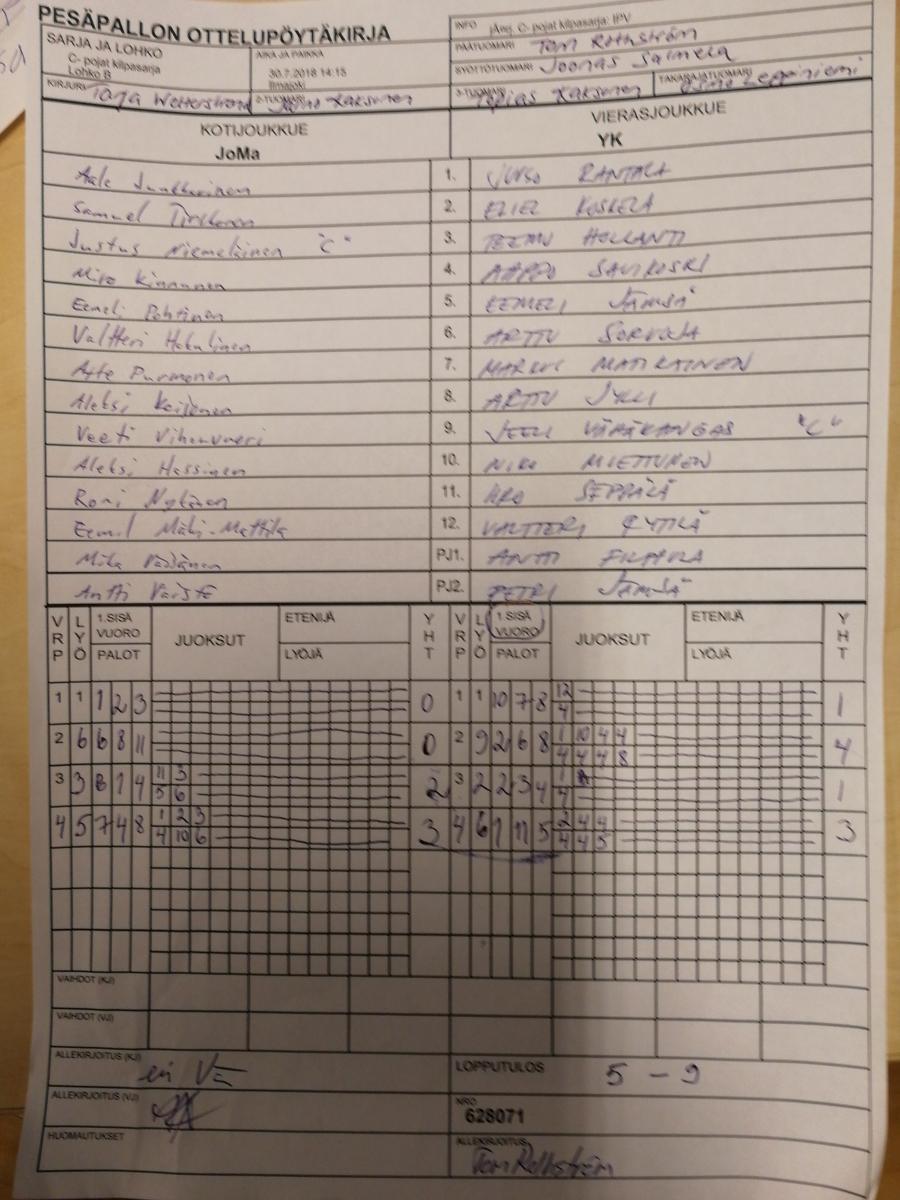 PESÄPALLON OTTELUPÖYTÄKIRJA
INFO jAnej. C- pojat kilpasarja: IPV
SARJA JA LOHKO
C- pojat kilpasarja
Lohko B
AIKA JA PAIKKA
30.7.2018 14:15
Ilmajoki
PÄÄTUOMARI Tom Rothström
SYÖTTÖTUOMARI Joonas Salmela
KIRJURI Tarja Wetterstrand
2-TUOMARI Kaksonen
3-TUOMARI Topias Kaksonen
TAKARAJATUOMARI Leppiniemi
KOTIJOUKKUE
JoMa
VIERASJOUKKUE
YK
Junkkarinen 1. RANTALA
Samuel Tirkkonen 2. ELIEL KOSKELA
Justus Niemeläinen "C" 3. TEEMU HOLLANTI
Miro Kinnunen 4. AAPPO SAVIKOSKI
Eemeli Pohtinen 5. EEMELI JÄMSÄ
Valtteri Hakulinen 6. ARTTU SORVOJA
Atte Purmonen 7. MARKUS MATIKAINEN
Aleksi Keijonen 8. ARTTU JYLLI
Veeti Vihavuori 9. VEELI VÄHÄKANGAS "C"
Aleksi Hassinen 10. NIKO MIETTUNEN
Roni Nykänen 11. SEPPÄLÄ
Eemil Mäki-Mattila 12. VALTTERI RYTILÄ
Mika Väisänen PJ1. ANTTI FILPPULA
Antti PJ2. PETRI JÄMSÄ
VRP LYÖ 1.SISÄ VUORO PALOT JUOKSUT ETENIJÄ LYÖJÄ YHT VRP LYÖ 1.SISÄ VUORO PALOT JUOKSUT ETENIJÄ LYÖJÄ YHT
1 1 1 2 3 0 1 1 10 7 8 12 1
4
2 6 6 8 11 0 2 9 2 6 8 1 10 4 4 4
4 4 4 8
3 3 8 1 4 11 3 2 3 2 2 3 4 1 1
5 6 4
4 5 7 4 8 1 2 3 3 4 6 1 11 5 2 4 4 3
4 10 6 4 4 5
VAIHDOT (KJ)
VAIHDOT (VJ)
ALLEKIRJOITUS (KJ)
LOPPUTULOS 5 - 9
ALLEKIRJOITUS (VJ)
NRO
628071
HUOMAUTUKSET
ALLEKIRJOITUS
Tom Rothström